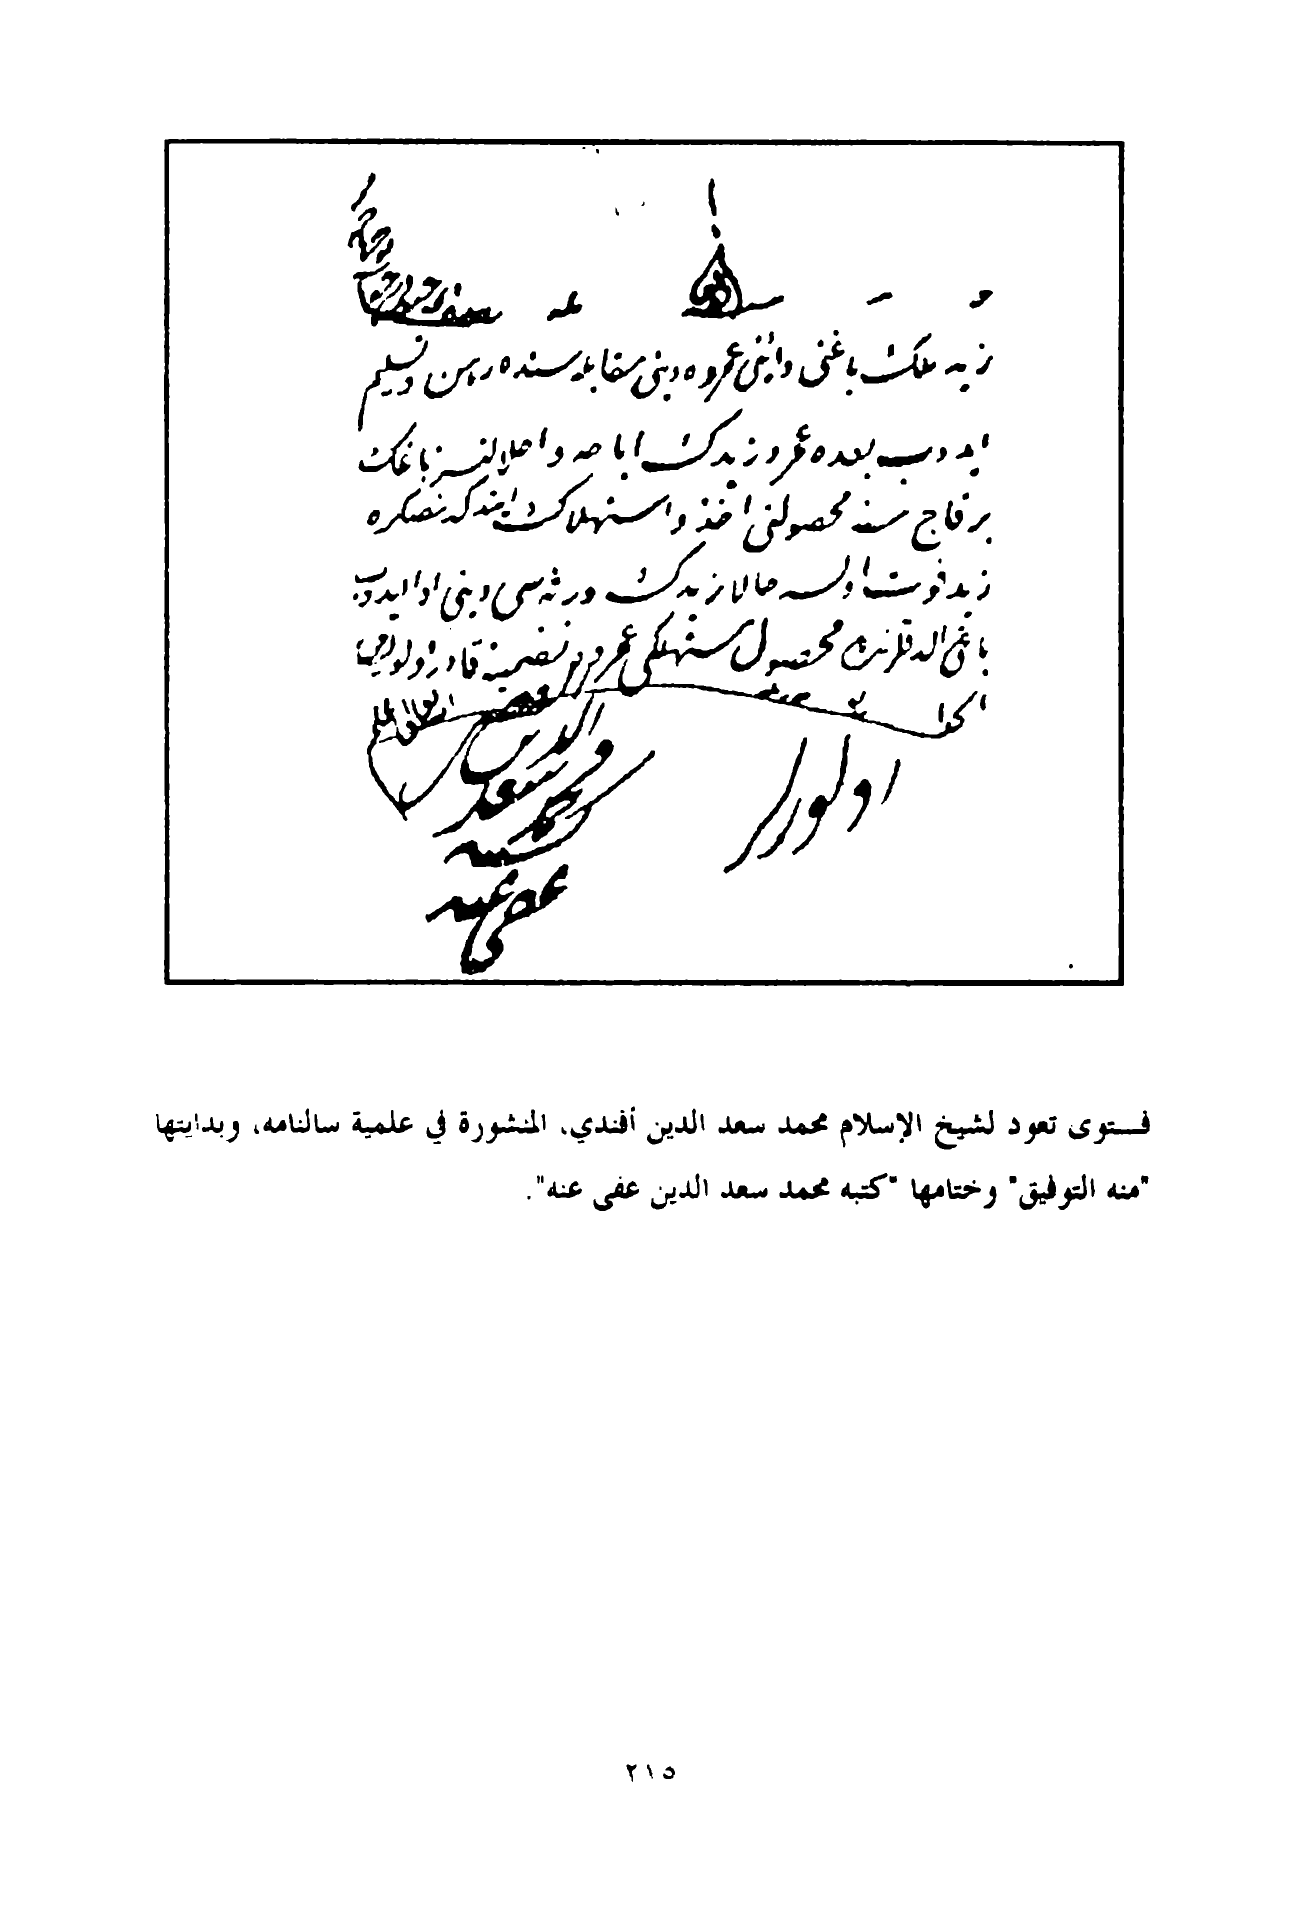 منه التوفيق
زيد ملك باغنى دائنى عمروه دينى مقابله سنده رهن و تسليم
ايدوب بعده عمرو زيدك اباحه و احلالنسز باغك
بر قاچ سنه محصولنى اخذ و استهلاك ايتدكدنصكره
زيد فوت اولسه حالا زيدك ورثه سى دينى ادا ايدوب
باغى الدقلرنده محصول مستهلكى عمروه تضمينه قادر اولورلرمى
الجواب
اولورلر
كتبه محمد سعد الدين
عفى عنه
فــتوى تعود لشيخ الإسلام محمد سعد الدين أفندي، المنشورة في علمية سالنامه، وبدايتها
"منه التوفيق" وختامها "كتبه محمد سعد الدين عفى عنه".
٢١٥